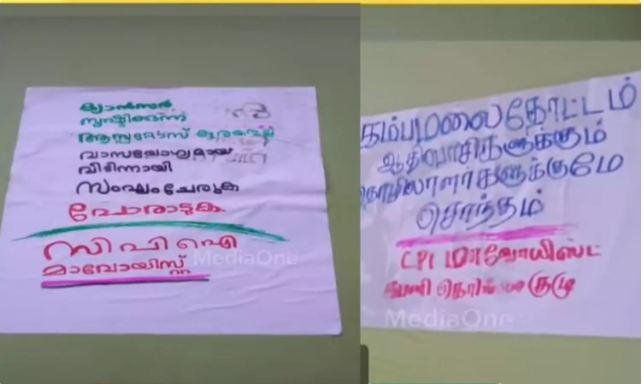 ക്യാൻസർ
സൃഷ്ടിക്കുന്ന
വാസയോഗ്യമായ
വീടിനായി
സംഘം ചേരുക
പോരാടുക
സി പി ഐ
മാവോയിസ്റ്റ്
MediaOne
கம்பமலைதோட்டம்
ஆதிவாசிகளுக்கும்
தொழிலாளர்களுக்குமே
சொந்தம்
CPI மாவோயிஸ்ட்
MediaOne